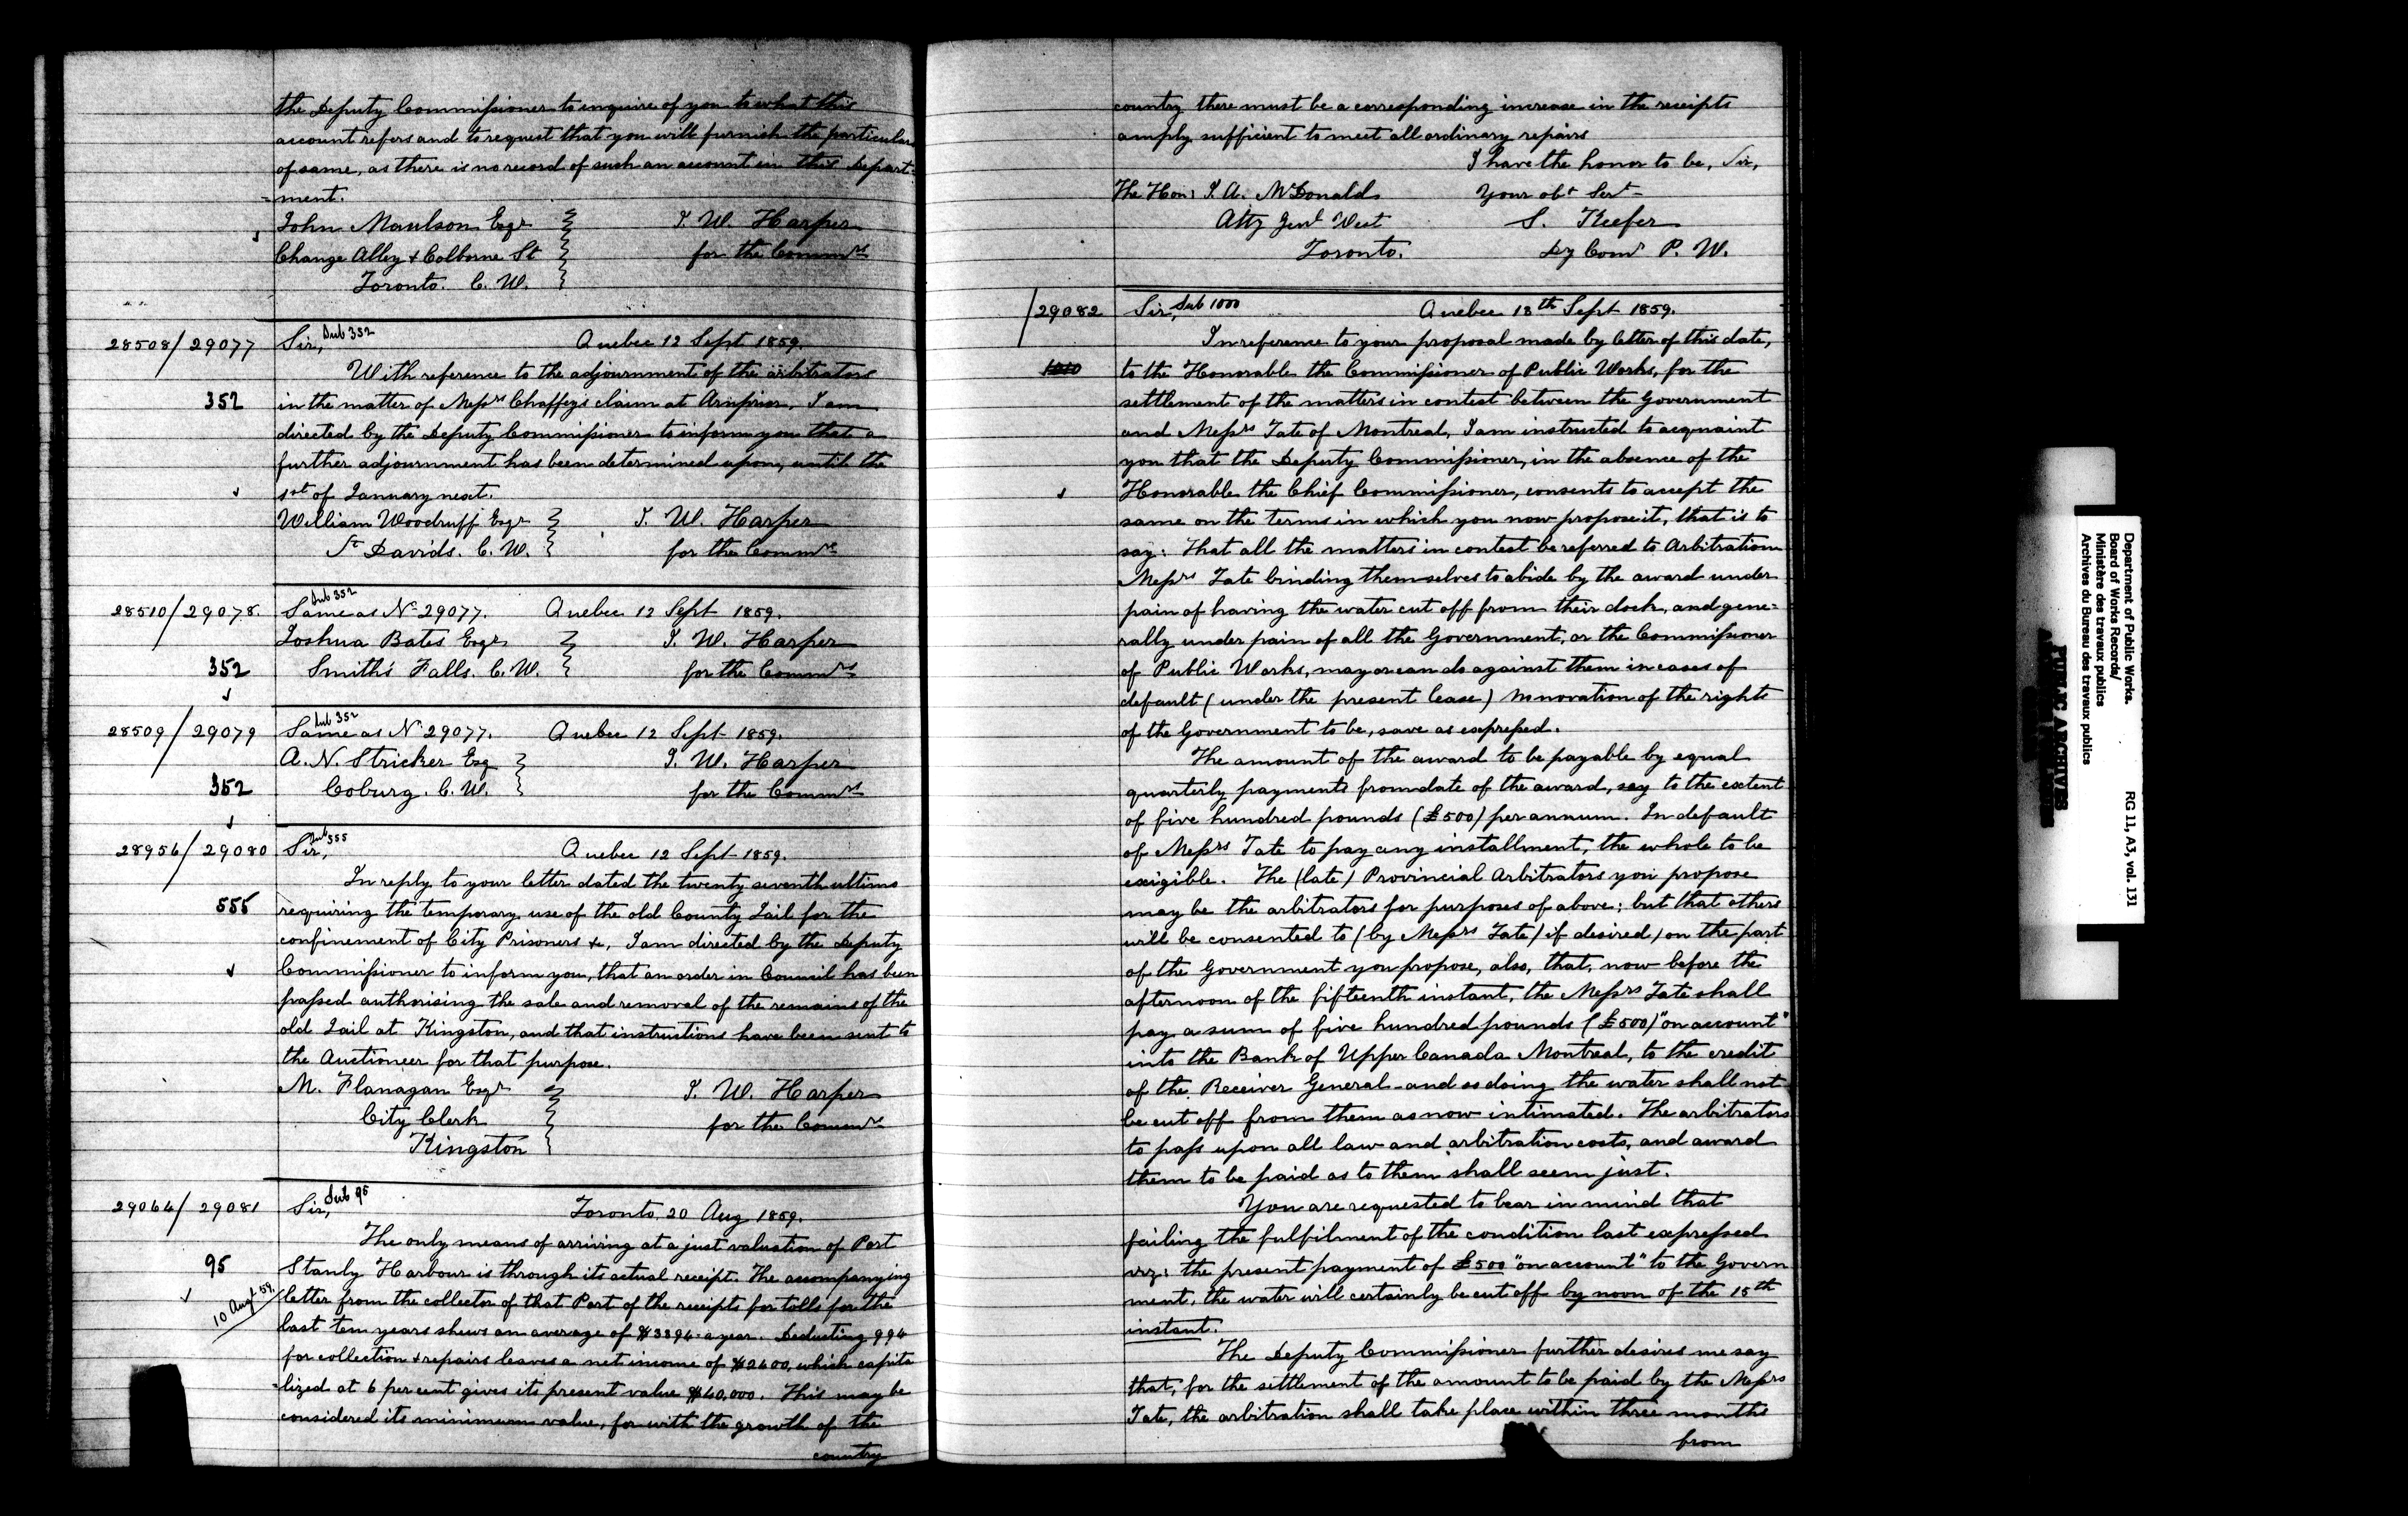 the Deputy Commissioner to enquire of you to what this
account refers and to request that you will furnish the particulars
of same, as there is no record of such an account in this Depart-
=ment.
John Moulson Esqr T. W. Harper
Change Alley & Colborne St for the Commrs
Toronto. C. W.
28508/29077 Sir, Sub 352 Quebec 12 Sept 1859.
With reference to the adjournment of the arbitrators
352 in the matter of Messrs Chaffeys claim at Arnprior, I am
directed by the Deputy Commissioner to inform you that a
further adjournment has been determined upon, until the
1st of January next.
William Woodruff Esqr T. W. Harper
St Davids. C. W. for the Commrs
28510/29078 Sub 352 Same as No 29077. Quebec 12 Sept 1859.
Joshua Bates Esqr T. W. Harper
352 Smith's Falls. C. W. for the Commrs
28509/29079 Sub 352 Same as No 29077. Quebec 12 Sept 1859.
A. N. Stricker Esq T. W. Harper
352 Coburg. C. W. for the Commrs
28956/29080 Sir, Sub 555 Quebec 12 Sept 1859.
In reply to your letter dated the twenty seventh ultimo
555 requiring the temporary use of the old County Jail for the
confinement of City Prisoners &c, I am directed by the Deputy
Commissioner to inform you, that an order in Council has been
passed authorising the sale and removal of the remains of the
old Jail at Kingston, and that instructions have been sent to
the Auctioneer for that purpose.
M. Flanagan Esqr T. W. Harper
City Clerk for the Commrs
Kingston
29064/29081 Sir, Sub 95 Toronto, 20 Aug 1859.
The only means of arriving at a just valuation of Port
95 Stanly Harbour is through its actual receipt. The accompanying
10 Augt 59. letter from the collector of that Port of the receipts for tolls for the
last ten years shews an average of $3394 a year. Deducting 994
for collection & repairs leaves a net income of $2400, which capita
=lized at 6 per cent gives its present value $40,000. This may be
considered its minimum value, for with the growth of the
country
country there must be a corresponding increase in the receipts
amply sufficient to meet all ordinary repairs
I have the honor to be, Sir,
The Hon: J. A. McDonald Your obt Sert
Atty Genl West S. Keefer
Toronto. Dy Comr P. W.
29082 Sir, Sub 1000 Quebec 13th Sept 1859.
In reference to your proposal made by letter of this date,
to the Honorable the Commissioner of Public Works, for the
settlement of the matters in contest between the Government
and Messrs Tate of Montreal, I am instructed to acquaint
you that the Deputy Commissioner, in the absence of the
Honorable the Chief Commissioner, consents to accept the
same on the terms in which you now propose it, that is to
say: That all the matters in contest be referred to Arbitration
Messrs Tate binding themselves to abide by the award under
pain of having the water cut off from their dock, and gene-
rally under pain of all the Government, or the Commissioner
of Public Works, may or can do against them in cases of
default (under the present lease) no novation of the rights
of the Government to be, save as expressed.
The amount of the award to be payable by equal
quarterly payments from date of the award, say to the extent
of five hundred pounds (£500) per annum. In default
of Messrs Tate to pay any installment, the whole to be
exigible. The (late) Provincial Arbitrators you propose
may be the arbitrators for purposes of above; but that others
will be consented to (by Messrs Tate) if desired) on the part
of the Government you propose, also, that, now before the
afternoon of the fifteenth instant, the Messrs Tate shall
pay a sum of five hundred pounds (£500) "on account"
into the Bank of Upper Canada Montreal, to the credit
of the Receiver General - and so doing the water shall not
be cut off from them as now intimated. The arbitrators
to pass upon all law and arbitration costs, and award
them to be paid as to them shall seem just.
You are requested to bear in mind that
failing the fulfilment of the condition last expressed
viz: the present payment of £500 "on account" to the Govern
ment, the water will certainly be cut off by noon of the 15th
instant.
The Deputy Commissioner further desires me say
that, for the settlement of the amount to be paid by the Messrs
Tate, the arbitration shall take place within three months
from
Department of Public Works.
Board of Works Records/
Ministère des travaux publics
Archives du Bureau des travaux publics
RG 11, A3, vol. 131
PUBLIC ARCHIVES